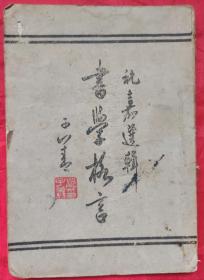 祝嘉選輯
書學格言